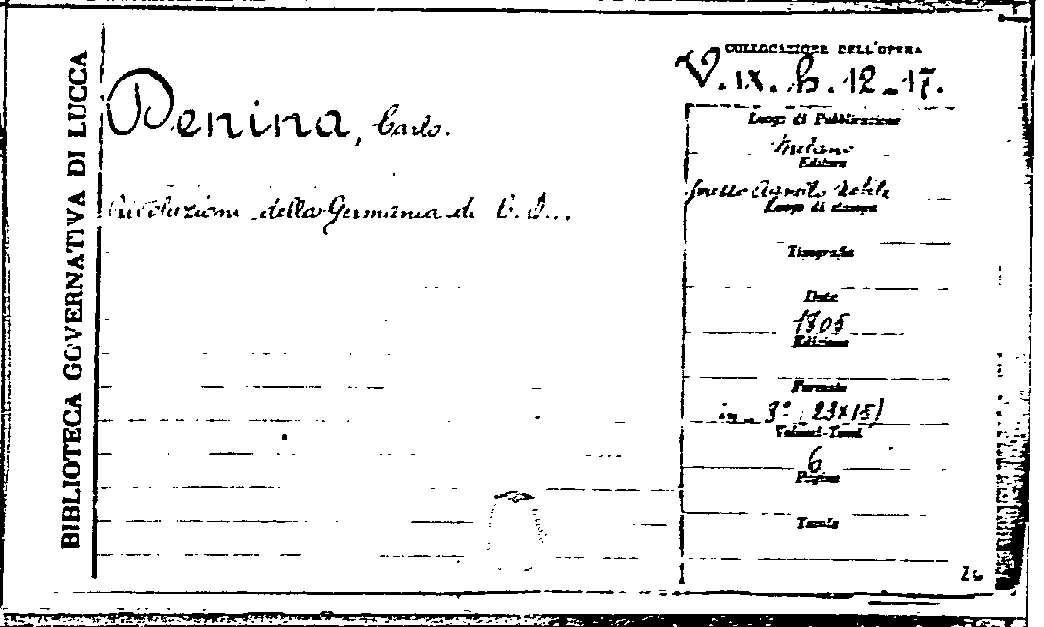 BIBLIOTECA GOVERNATIVA DI LUCCA
Denina, Carlo.
Rivoluzioni della Germania di C. D...
COLLOCAZIONE DELL'OPERA
V. IX. h. 12-17.
Luogo di Pubblicazione
Milano
Editore
presso Agnello Nobile
Luogo di stampa
Tipografia
Data
1805
Edizione
Formato
in 8° (23x15)
Volumi-Tomi
6
Pagine
Tavole
26